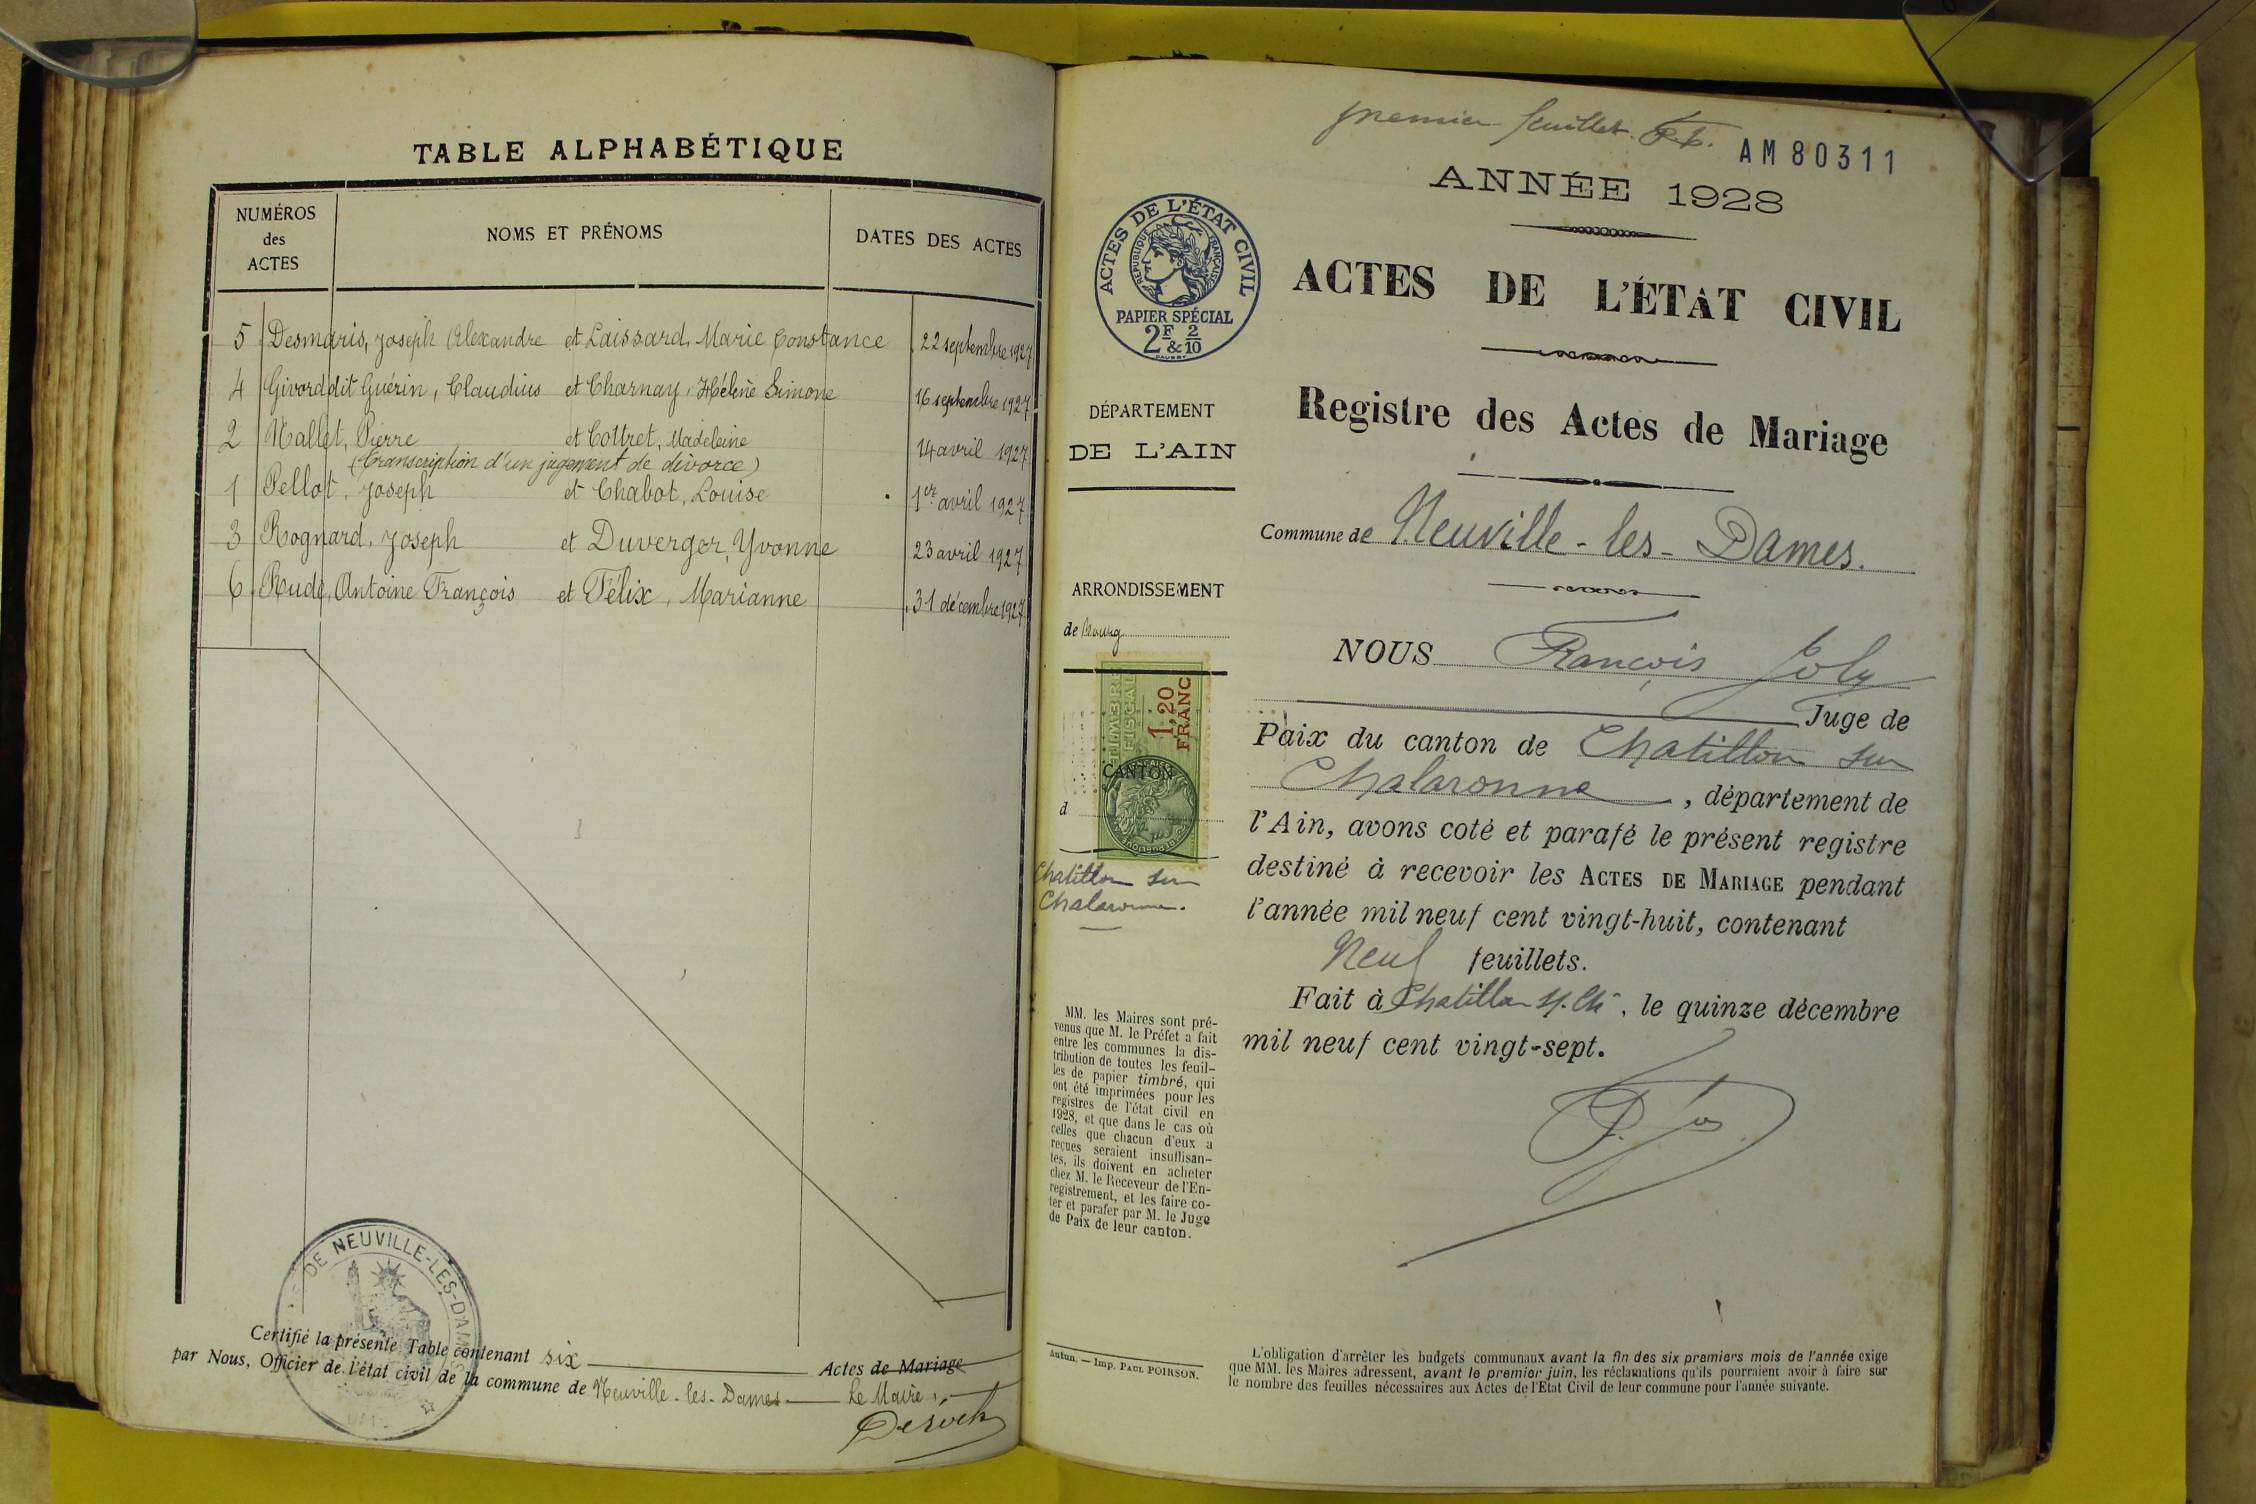 TABLE ALPHABÉTIQUE
NUMÉROS
des
ACTES
NOMS ET PRÉNOMS
DATES DES ACTES
5 Desmaris, Joseph Alexandre et Laissard, Marie Constance 22 septembre 1927
4 Givord dit Guérin, Claudius et Charnay, Hélène Simone 16 septembre 1927
2 Mallet, Pierre et Cottret, Madeleine 14 avril 1927
(transcription d'un jugement de divorce)
1 Pellot, Joseph et Chabot, Louise 1er avril 1927
3 Rognard, Joseph et Duverger, Yvonne 23 avril 1927
6 Rude, Antoine François et Félix, Marianne 31 décembre 1927
DE NEUVILLE-LES-DAMES
Certifié la présente Table contenant six Actes de Mariage
par Nous, Officier de l'état civil de la commune de Neuville-les-Dames Le Maire,
premier feuillet.
AM80311
ANNÉE 1928
ACTES DE L'ÉTAT CIVIL
RÉPUBLIQUE FRANÇAISE
PAPIER SPÉCIAL
2F & 2/10
ACTES DE L'ÉTAT CIVIL
Registre des Actes de Mariage
DÉPARTEMENT
DE L'AIN
Commune de Neuville-les-Dames.
ARRONDISSEMENT
de Bourg
TIMBRE
FISCAL
1,20
FRANC
CANTON
d
Chatillon sur
Chalaronne.
NOUS François Joly
Juge de
Paix du canton de Chatillon sur
Chalaronne, département de
l'Ain, avons coté et parafé le présent registre
destiné à recevoir les ACTES DE MARIAGE pendant
l'année mil neuf cent vingt-huit, contenant
Neuf feuillets.
Fait à Chatillon s/. Ch, le quinze décembre
mil neuf cent vingt-sept.
MM. les Maires sont pré-
venus que M. le Préfet a fait
entre les communes la dis-
tribution de toutes les feuil-
les de papier timbré, qui
ont été imprimées pour les
registres de l'état civil en
1928, et que dans le cas où
celles que chacun d'eux a
reçues seraient insuffisan-
tes, ils doivent en acheter
chez M. le Receveur de l'En-
registrement, et les faire co-
ter et parafer par M. le Juge
de Paix de leur canton.
Autun. — Imp. PAUL POIRSON.
L'obligation d'arrêter les budgets communaux avant la fin des six premiers mois de l'année exige
que MM. les Maires adressent, avant le premier juin, les réclamations qu'ils pourraient avoir à faire sur
le nombre des feuilles nécessaires aux Actes de l'Etat Civil de leur commune pour l'année suivante.